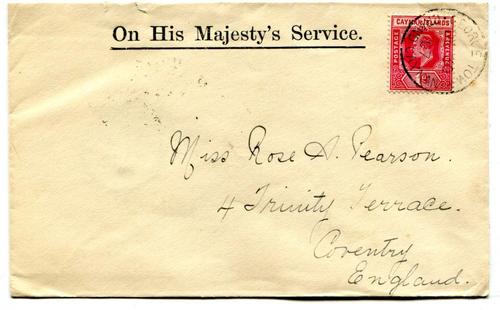 On His Majesty's Service.
CAYMAN ISLANDS
POSTAGE
REVENUE
1D
GEORGE TOWN
Miss Rose A. Pearson.
4 Trinity Terrace.
Coventry
England.